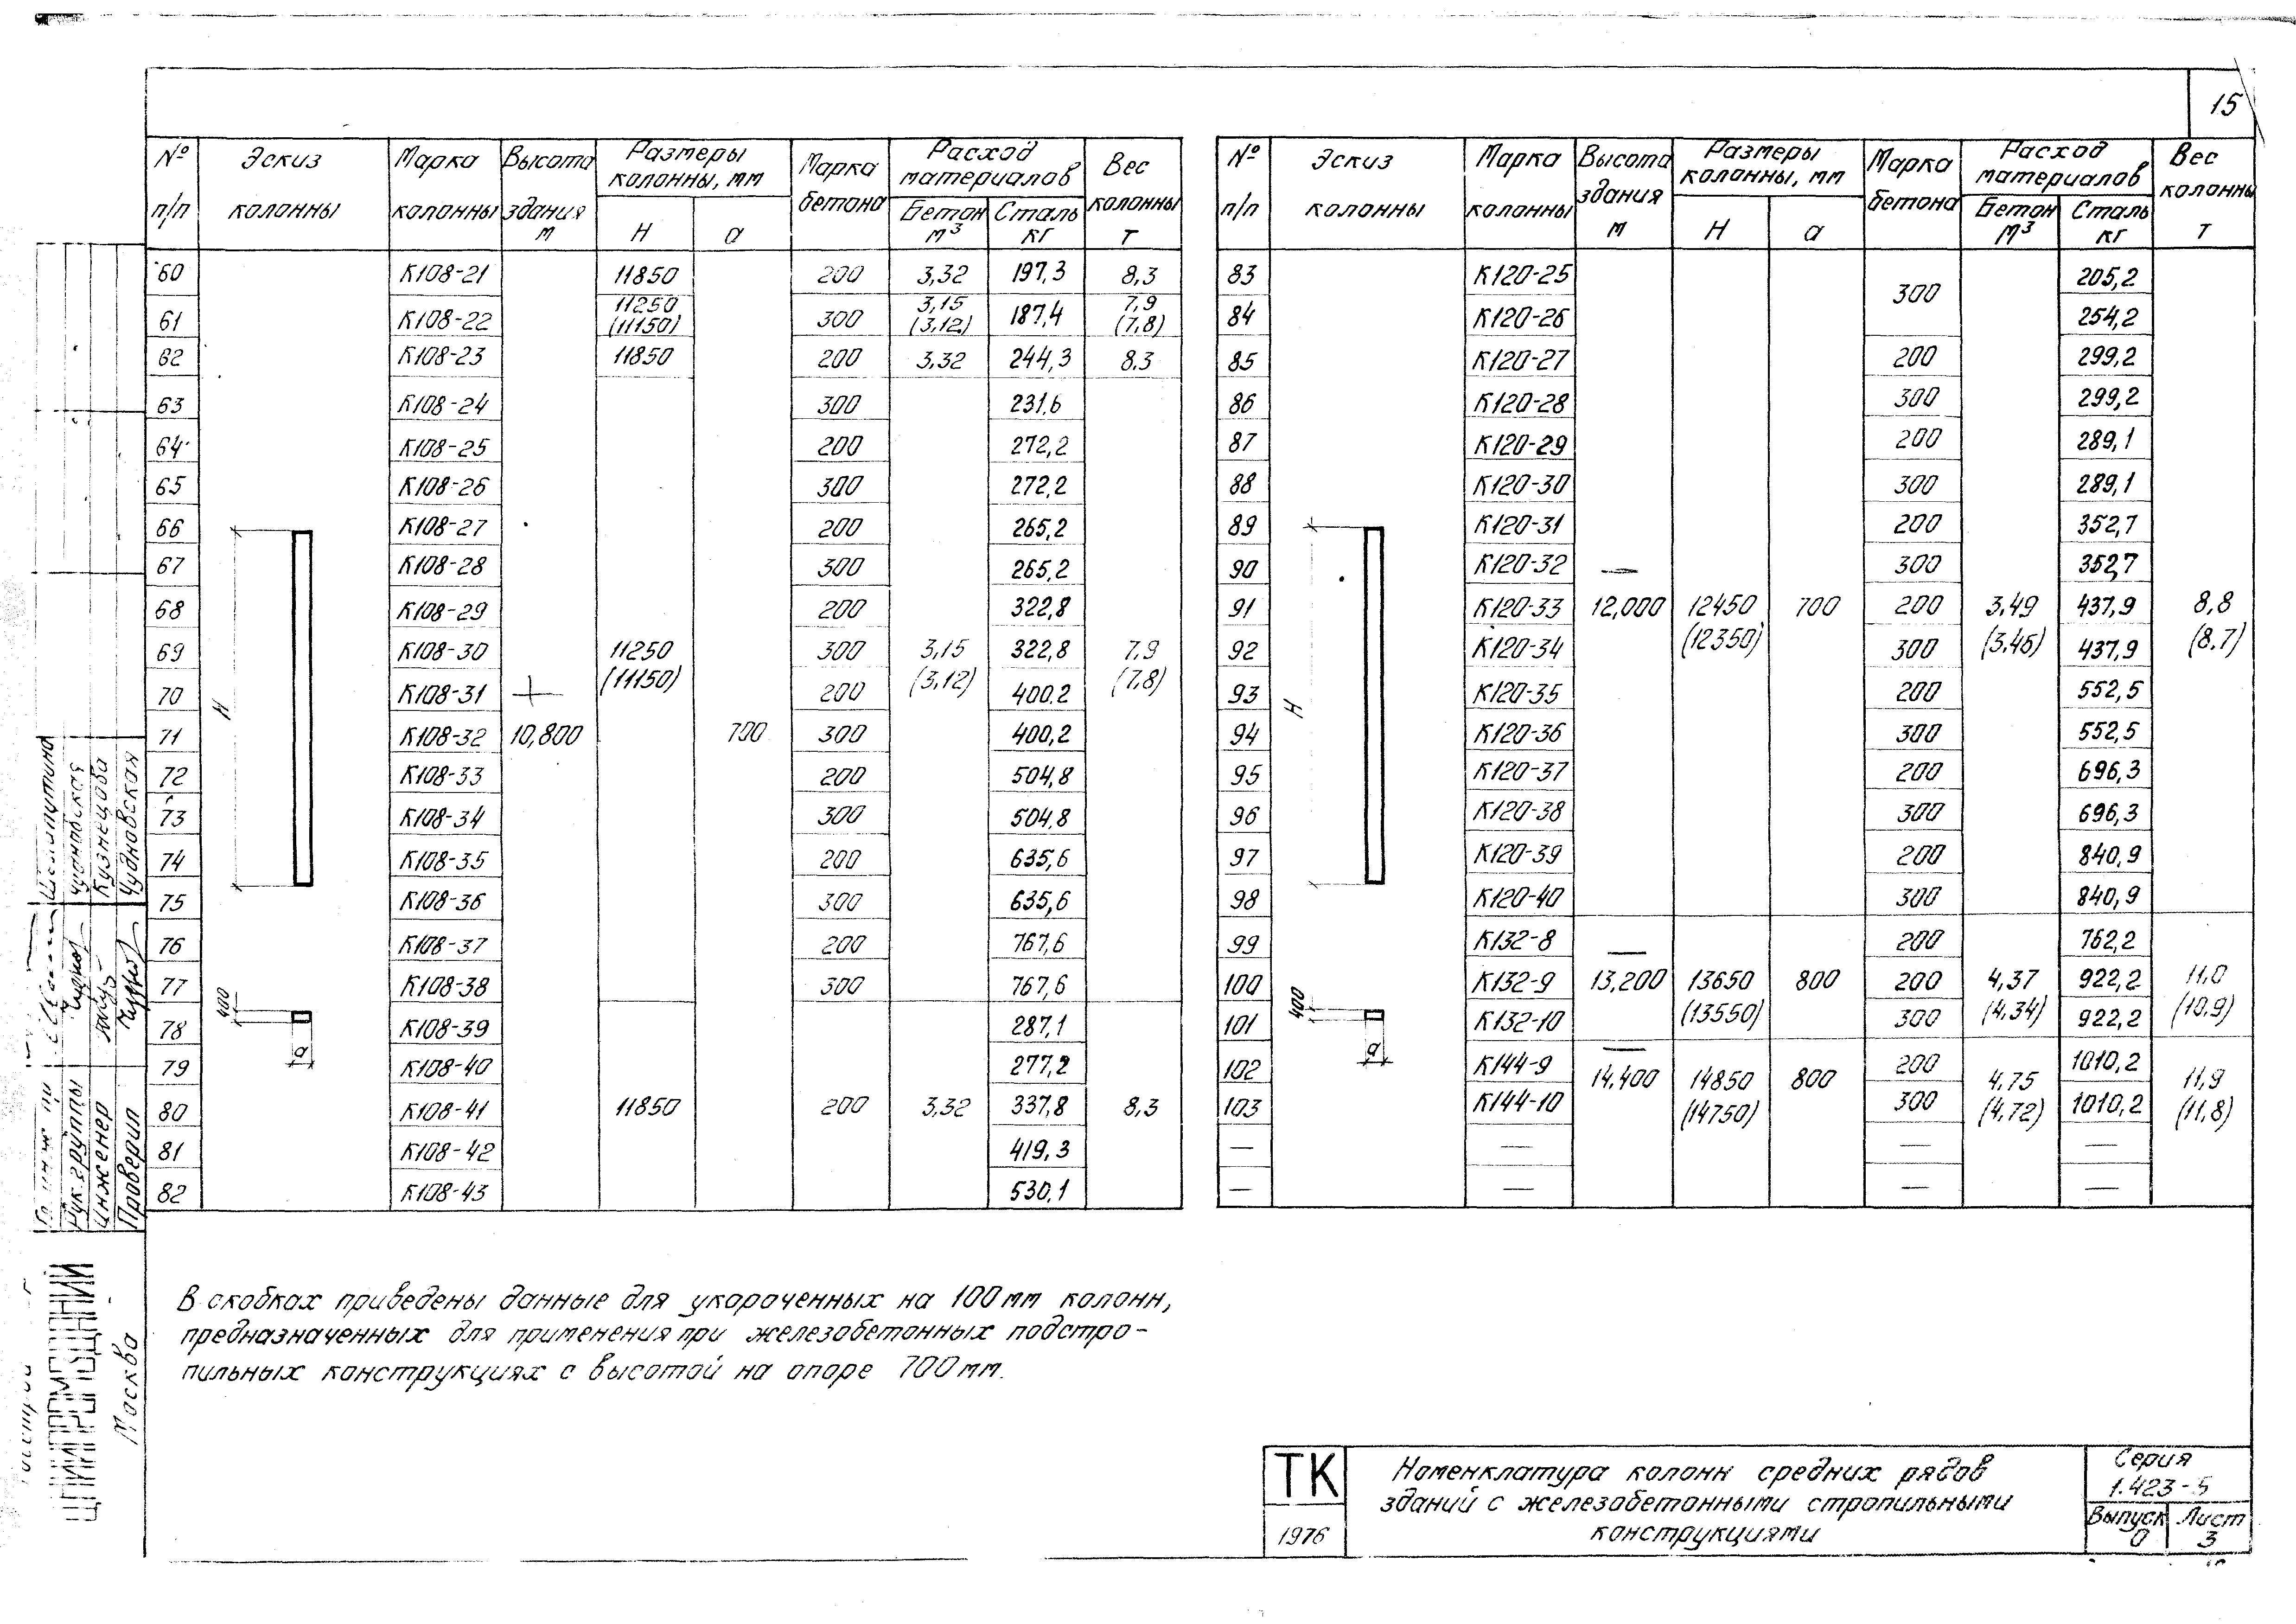 15
№ п/п | Эскиз колонны | Марка колонны | Высота здания м | Размеры колонны, мм H | a | Марка бетона | Расход материалов Бетон м³ | Сталь кг | Вес колонны т
60 К108-21 11850 200 3,32 197,3 8,3
61 К108-22 11250 (11150) 300 3,15 (3,12) 187,4 7,9 (7,8)
62 К108-23 11850 200 3,32 244,3 8,3
63 К108-24 300 231,6
64 К108-25 200 272,2
65 К108-26 300 272,2
66 К108-27 200 265,2
67 К108-28 300 265,2
68 К108-29 200 322,8
69 К108-30 11250 300 3,15 322,8 7,9
70 К108-31 (11150) 200 (3,12) 400,2 (7,8)
71 К108-32 10,800 700 300 400,2
72 К108-33 200 504,8
73 К108-34 300 504,8
74 К108-35 200 635,6
75 К108-36 300 635,6
76 К108-37 200 767,6
77 К108-38 300 767,6
78 К108-39 287,1
79 К108-40 277,2
80 К108-41 11850 200 3,32 337,8 8,3
81 К108-42 419,3
82 К108-43 530,1
H
400
a
№ п/п | Эскиз колонны | Марка колонны | Высота здания м | Размеры колонны, мм H | a | Марка бетона | Расход материалов Бетон м³ | Сталь кг | Вес колонны т
83 К120-25 300 205,2
84 К120-26 254,2
85 К120-27 200 299,2
86 К120-28 300 299,2
87 К120-29 200 289,1
88 К120-30 300 289,1
89 К120-31 200 352,7
90 К120-32 — 300 352,7
91 К120-33 12,000 12450 700 200 3,49 437,9 8,8
92 К120-34 (12350) 300 (3,46) 437,9 (8,7)
93 К120-35 200 552,5
94 К120-36 300 552,5
95 К120-37 200 696,3
96 К120-38 300 696,3
97 К120-39 200 840,9
98 К120-40 300 840,9
99 К132-8 — 200 762,2
100 К132-9 13,200 13650 800 200 4,37 922,2 11,0
101 К132-10 (13550) 300 (4,34) 922,2 (10,9)
102 К144-9 — 14,400 14850 800 200 4,75 1010,2 11,9
103 К144-10 (14750) 300 (4,72) 1010,2 (11,8)
— — — —
— — — —
H
400
a
В скобках приведены данные для укороченных на 100 мм колонн,
предназначенных для применения при железобетонных подстро-
пильных конструкциях с высотой на опоре 700 мм.
ТК
1976
Номенклатура колонн средних рядов
зданий с железобетонными стропильными
конструкциями
Серия
1.423-5
Выпуск 0
Лист 3
Рук. группы
Инженер Кузнецова
Проверил Чудновская
ЦНИИПРОМЗДАНИЙ
Москва